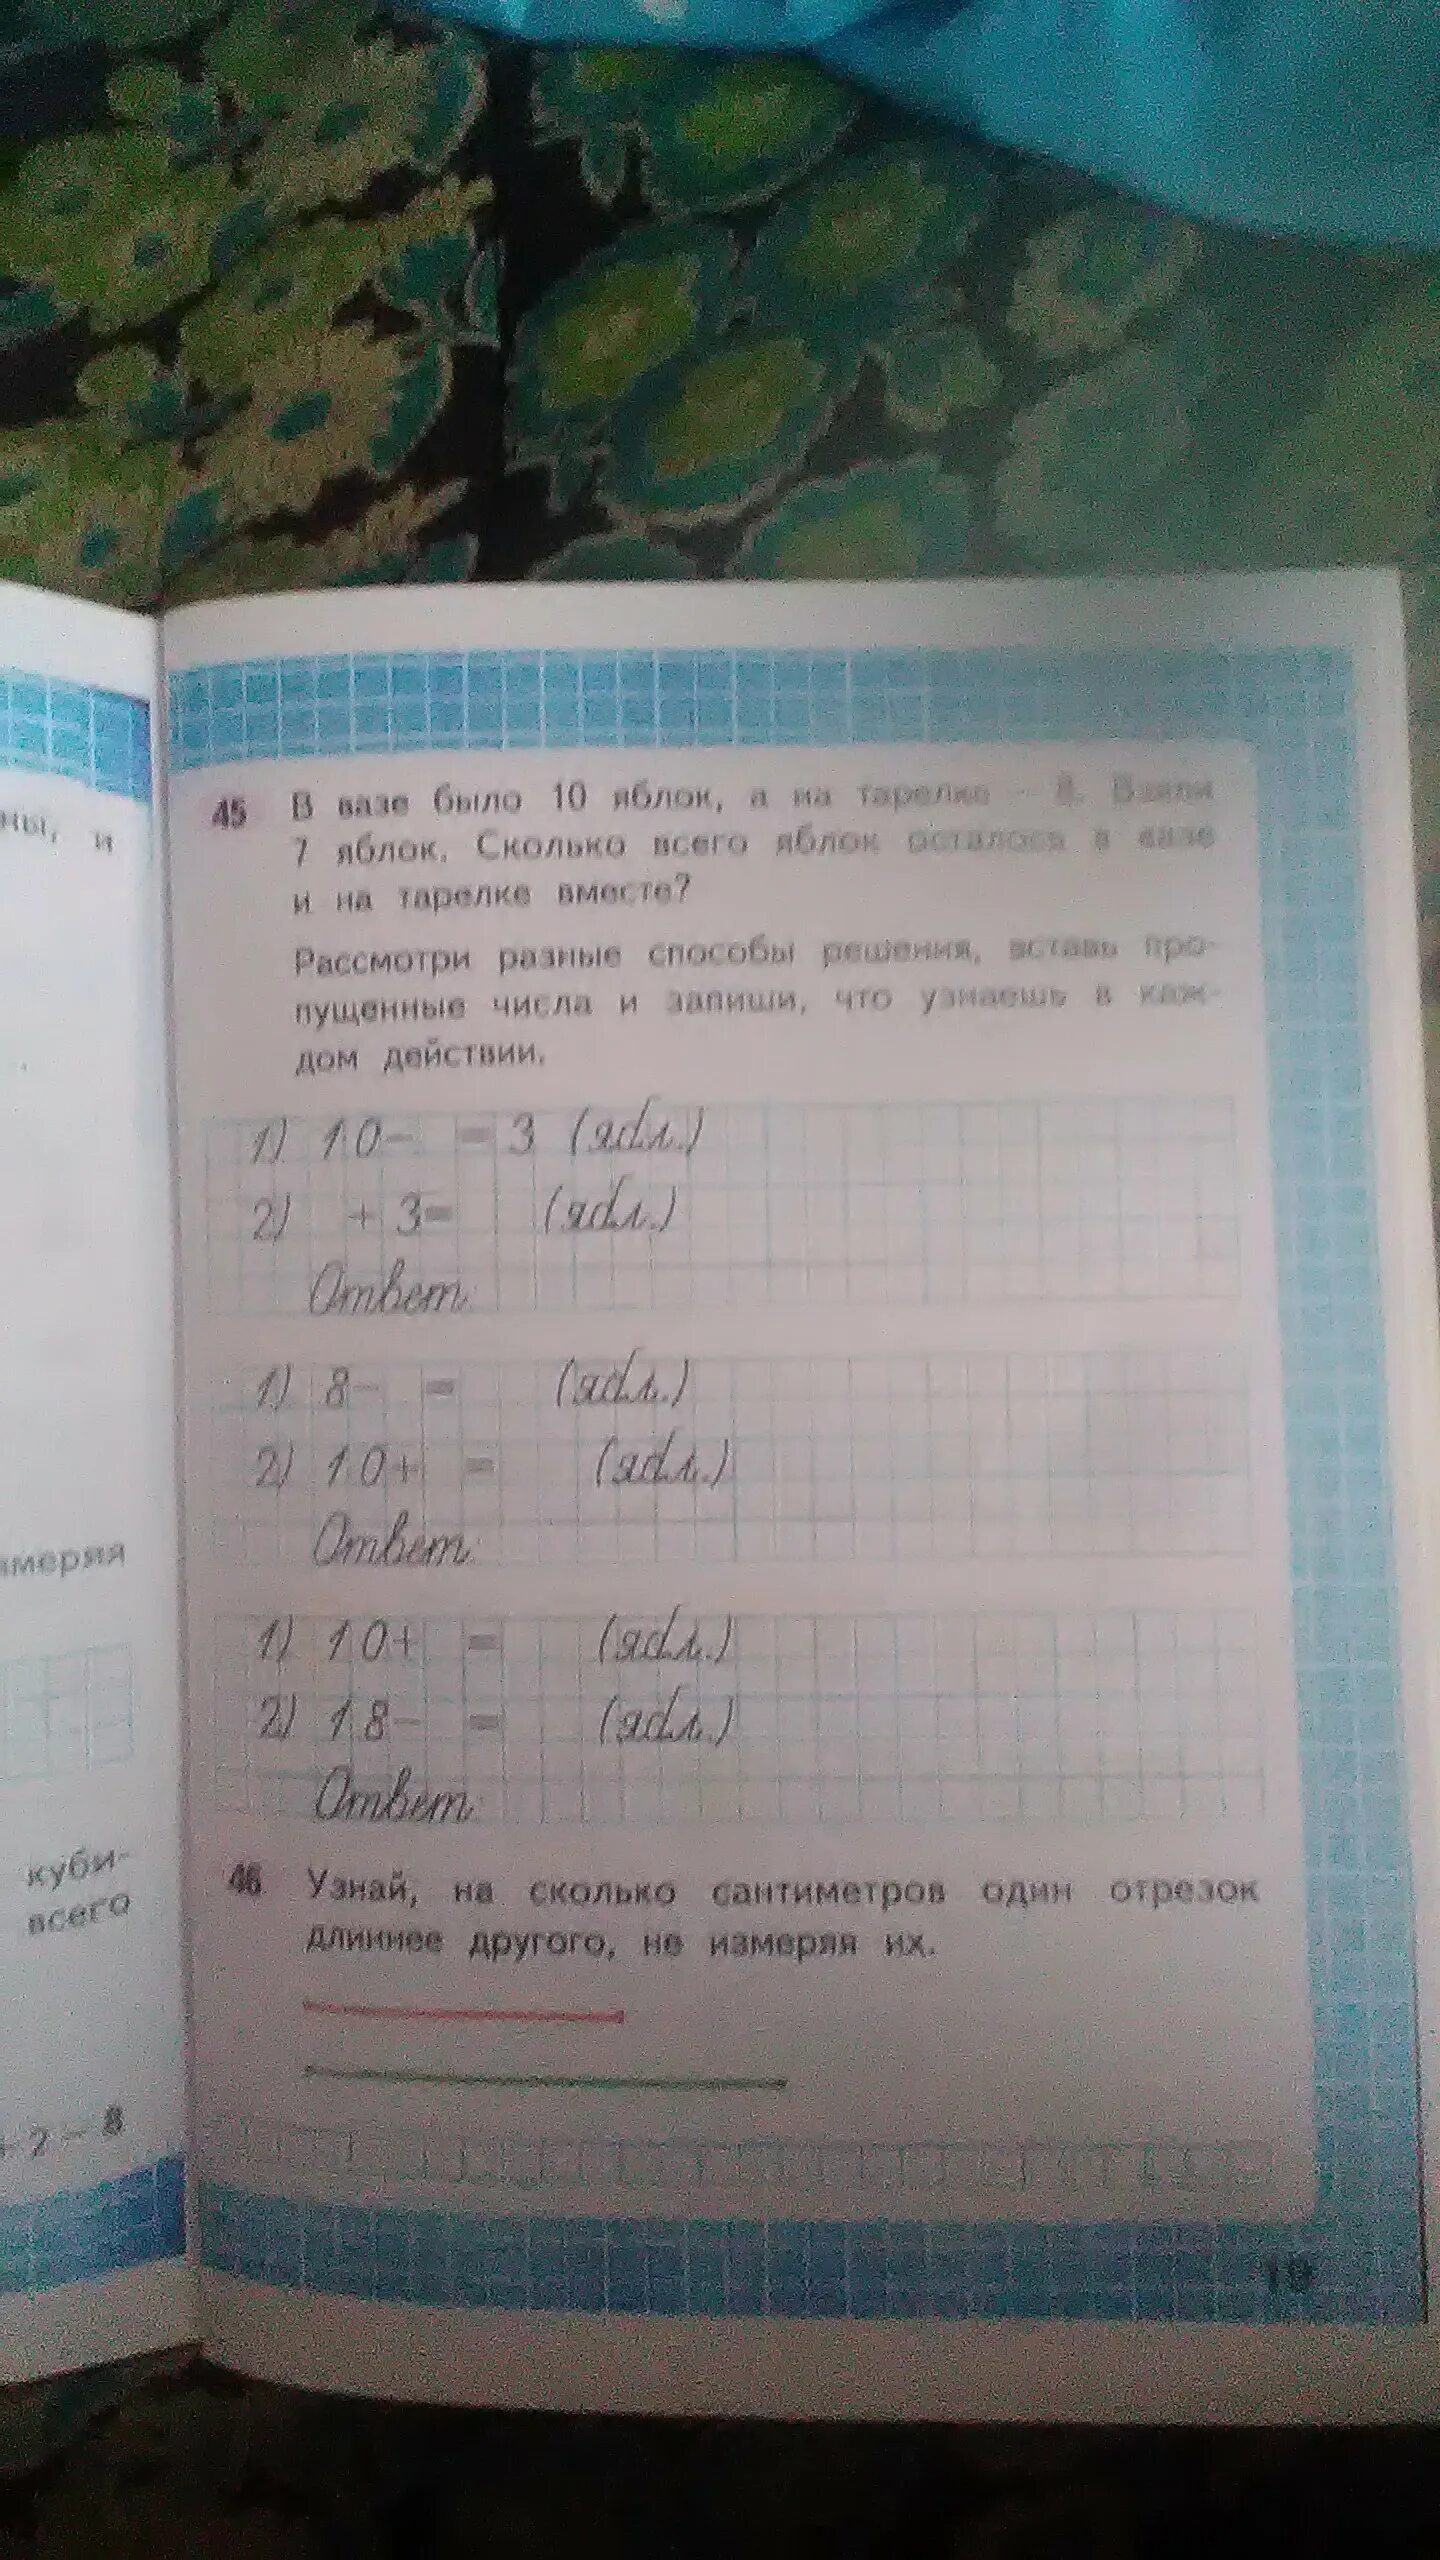 ны, и
амеряя
куби-
всего
+ 7 - 8
45 В вазе было 10 яблок, а на тарелке - 8. Взяли
7 яблок. Сколько всего яблок осталось в вазе
и на тарелке вместе?
Рассмотри разные способы решения, вставь про-
пущенные числа и запиши, что узнаешь в каж-
дом действии.
1) 10- = 3 (ябл.)
2) + 3= (ябл.)
Ответ:
1) 8- = (ябл.)
2) 10+ = (ябл.)
Ответ:
1) 10+ = (ябл.)
2) 18- = (ябл.)
Ответ:
46 Узнай, на сколько сантиметров один отрезок
длиннее другого, не измеряя их.
19